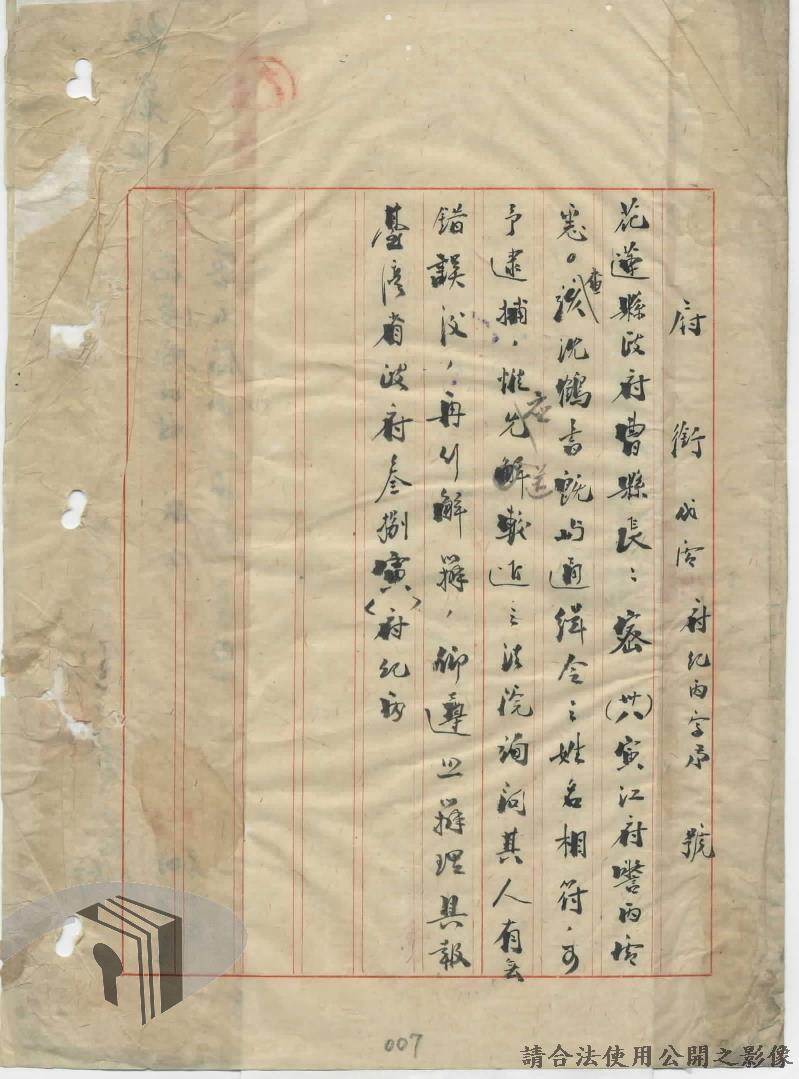 府銜 代電 府紀丙字第 號
花蓮縣政府曹縣長：密(卅八)寅江府警丙電
悉。查該沈鶴書既與通緝令之姓名相符，可
予逮捕，惟應先解送較近之法院詢問其人有無
錯誤後，再行解辦，仰遵照辦理具報
臺灣省政府叁捌寅()府紀丙
007
請合法使用公開之影像